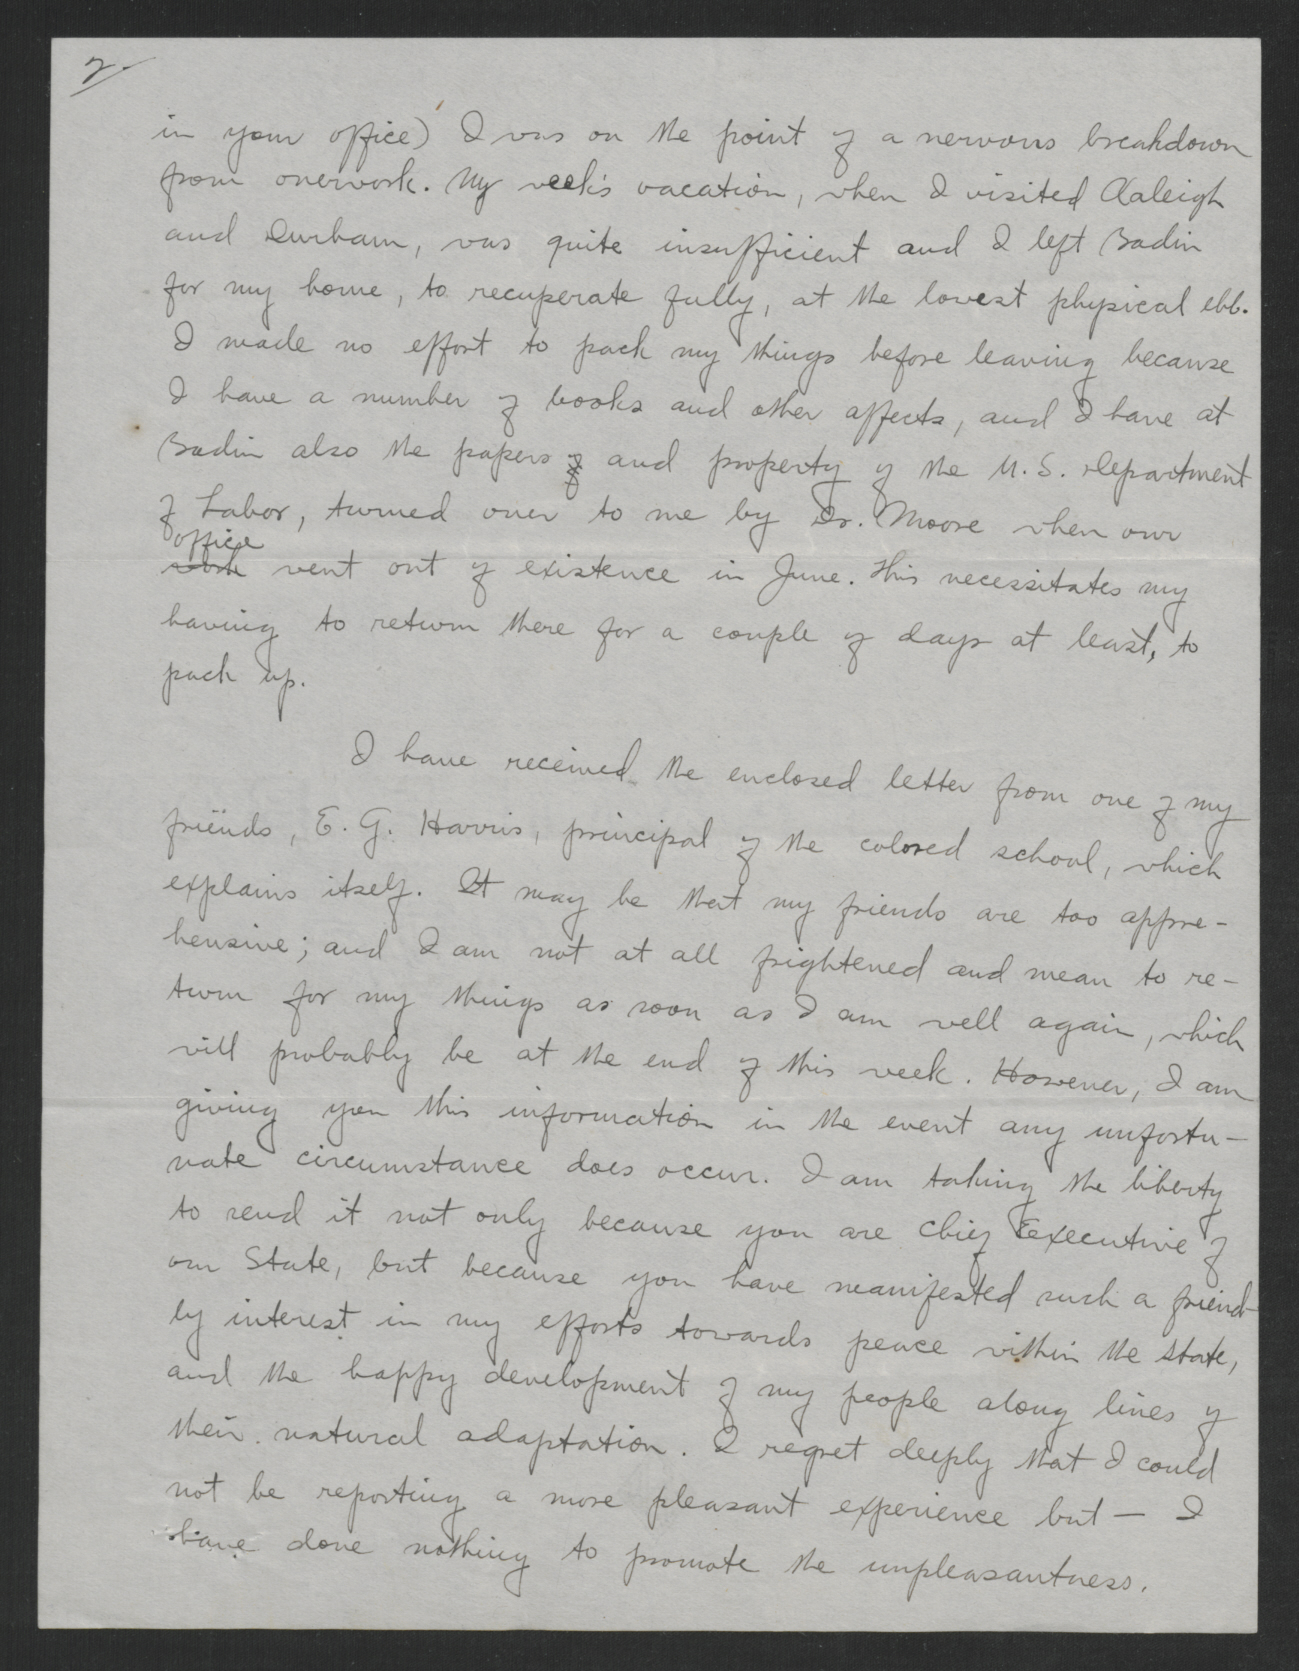 2.
in your office) I was on the point of a nervous breakdown
from overwork. My week's vacation, when I visited Raleigh
and Durham, was quite insufficient and I left Badin
for my home, to recuperate fully, at the lowest physical ebb.
I made no effort to pack my things before leaving because
I have a number of books and other affects, and I have at
Badin also the papers of and property of the U.S. Department
of Labor, turned over to me by Dr. Moore when our
office
work went out of existence in June. This necessitates my
having to return there for a couple of days at least, to
pack up.
I have received the enclosed letter from one of my
friends, E. G. Harris, principal of the colored school, which
explains itself. It may be that my friends are too appre-
hensive; and I am not at all frightened and mean to re-
turn for my things as soon as I am well again, which
will probably be at the end of this week. However, I am
giving you this information in the event any unfortu-
nate circumstance does occur. I am taking the liberty
to send it not only because you are Chief Executive of
our State, but because you have manifested such a friend-
ly interest in my efforts towards peace within the State,
and the happy development of my people along lines of
their natural adaptation. I regret deeply that I could
not be reporting a more pleasant experience but — I
have done nothing to promote the unpleasantness.